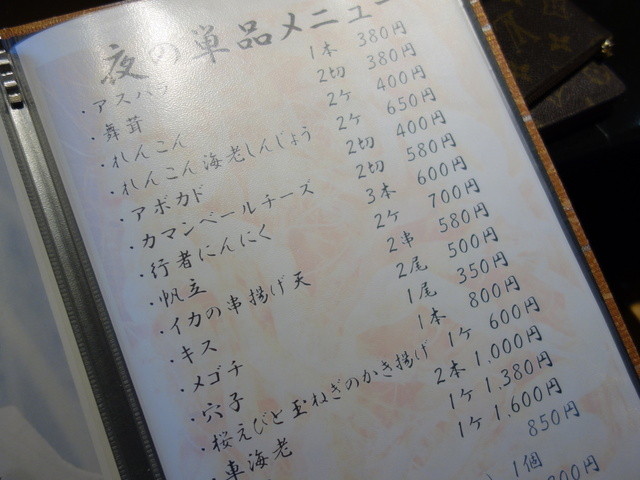 夜の単品メニュー
・アスパラ 1本 380円
・舞茸 2切 380円
・れんこん 2ケ 400円
・れんこん海老しんじょう 2ケ 650円
・アボカド 2切 400円
・カマンベールチーズ 2切 580円
・行者にんにく 3本 600円
・帆立 2ケ 700円
・イカの串揚げ天 2串 580円
・キス 2尾 500円
・メゴチ 1尾 350円
・穴子 1本 800円
・桜えびと玉ねぎのかき揚げ 1ケ 600円
・車海老 2本 1.000円
1ケ 1.380円
1ケ 1.600円
850円
1個